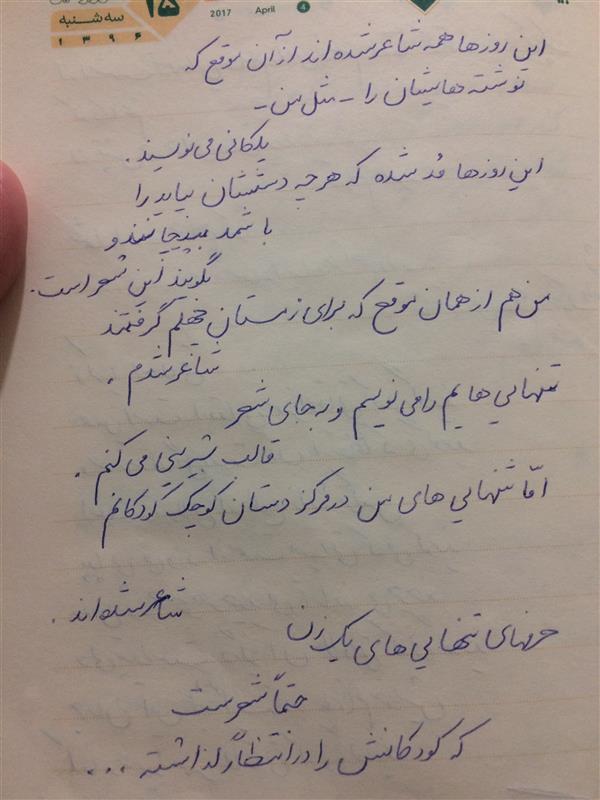 ۱۵
2017 April 4
سه شنبه
۱۳۹۶
این روزها همه شاعر شده اند از آن موقع که
نوشته هایشان را - مثل من -
پلکانی می نویسند.
این روزها مُد شده که هر چه دستشان بیاید را
با شمد بپیچانند و
بگویند این شعر است.
من هم از همان موقع که برای زمستان چهلم گرفتند
شاعر شدم.
تنهایی هایم را می نویسم و به جای شعر
قالب شیرینی می کنم.
امّا تنهایی های من در مرکز دستان کوچک کودکانم
شاعر شده اند.
حرفهای تنهایی های یک زن
حتماً شعرست
که کودکانش را در انتظار گذاشته ...